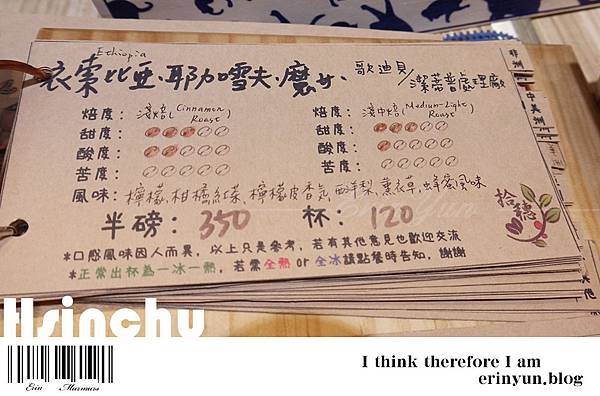 Ethiopia
衣索比亞、耶加雪夫、魔女、歌迪貝/潔蒂普處理廠
焙度：淺焙(Cinnamon Roast) 焙度：淺中焙(Medium-Light Roast)
甜度： 甜度：
酸度： 酸度：
苦度： 苦度：
風味：檸檬、柑橘紅茶、檸檬皮香氣、酥梨、薰衣草、蜂蜜風味
半磅：350 杯：120
*口感風味因人而異，以上只是參考，若有其他意見也歡迎交流
*正常出杯為一冰一熱，若需全熱 or 全冰請點餐時告知，謝謝
拾穗
中美洲
Hsinchu
I think therefore I am
erinyun.blog
Erin Murmurs